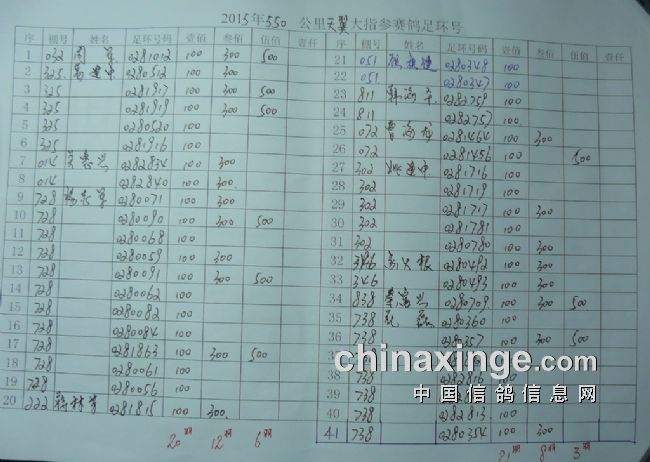 2015年550 公里天翼大指参赛鸽足环号
序 棚号 姓名 足环号码 壹佰 叁佰 伍佰 壹仟
1 032 周军 0281012 100 300 500
2 325 建中 0280512 100 300
3 325 0281917 100 300 500
4 325 0281919 100 300 500
5 325 0280520 100
6 325 0281916 100
7 014 0282834 100 300
8 014 0282840 100 300
9 728 0280071 100 300
10 728 0280090 100 300 500
11 728 0280068 100
12 728 0280059 100 300
13 728 0280091 100 300 500
14 728 0280062 100
15 728 0280082 100
16 728 0280084 100
17 728 0281863 100 300 500
18 728 0280061 100
19 728 0280056 100
20 222 0281815 100 300
20 12 6
序 棚号 姓名 足环号码 壹佰 叁佰 伍佰 壹仟
21 051 0280348 100
22 051 0280347 100
23 811 0282759 100
24 811 0282757 100
25 072 曹 0281464 100 300
26 072 0281456 100 500
27 302 姚建中 0281716 100
28 302 0281719 100
29 302 0281717 100 300
30 302 0281781 100
31 302 0280780 100 300
32 346 火根 0280492 100 300
33 346 0280493 100 300
34 838 0280709 100 300 500
35 738 0280360 100
36 738 0280357 100 300 500
38 738
39 738
40 738 0282813 100
41 738 0280354 100 300
21 8 3
chinaxinge.com
中国信鸽信息网